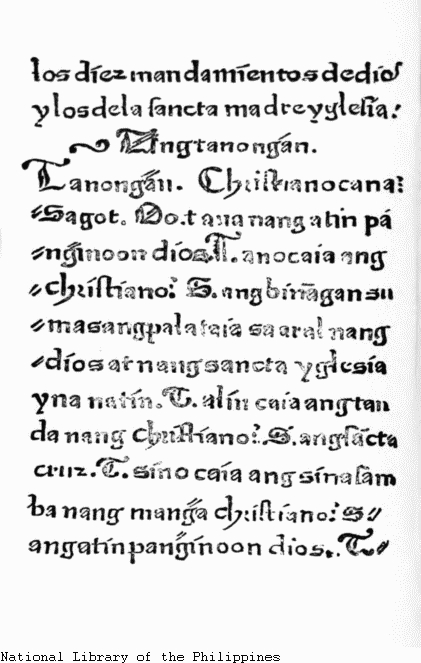 los díez mandamíentos de díos
y los dela sancta madre yglesía.
Angtanongán.
Tanongán. Christiano cana?
Sagot. Oo. t aua nang atin pá
nḡinoon díos. T. ano caía ang
christiano? S. ang binãgan su
masangpalataía sa aral nang
díos at nang sancta yglesía
yna natín. T. alín caía ang tan
da nang christiano?. S. ang sãcta
cruz. T. síno caía ang sínasam
ba nang manḡa christiano? S
ang atín panḡínoon dios. T
National Library of the Philippines